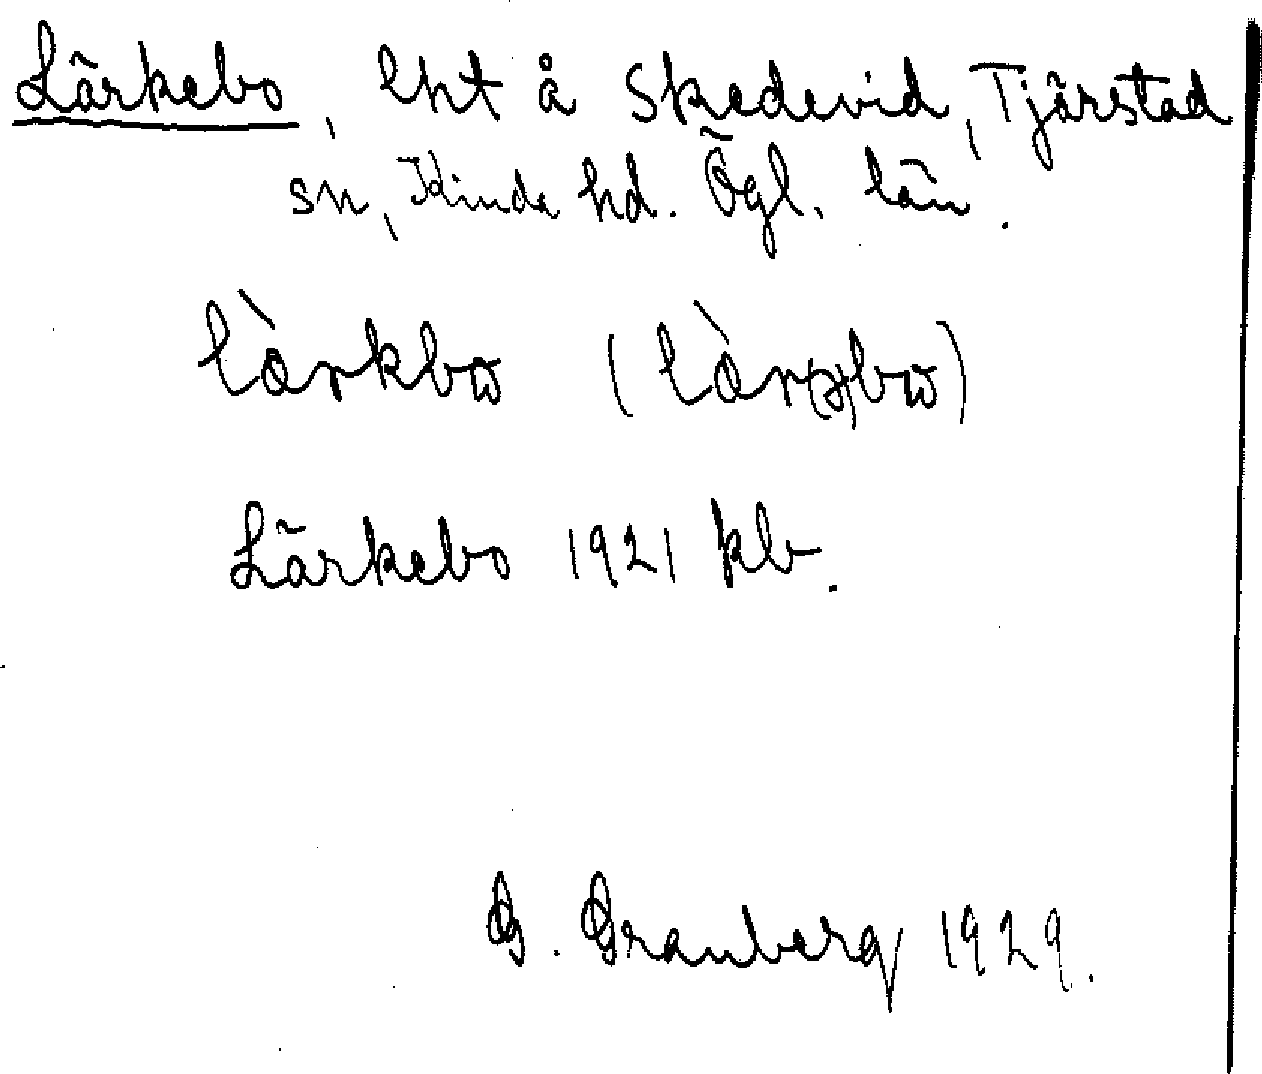 Lärkebo, lht å Skedevid, Tjärstad
sn, Kinda hd. Ögl. län.
Lärkebo 1921 kb.
G. Granberg 1929.